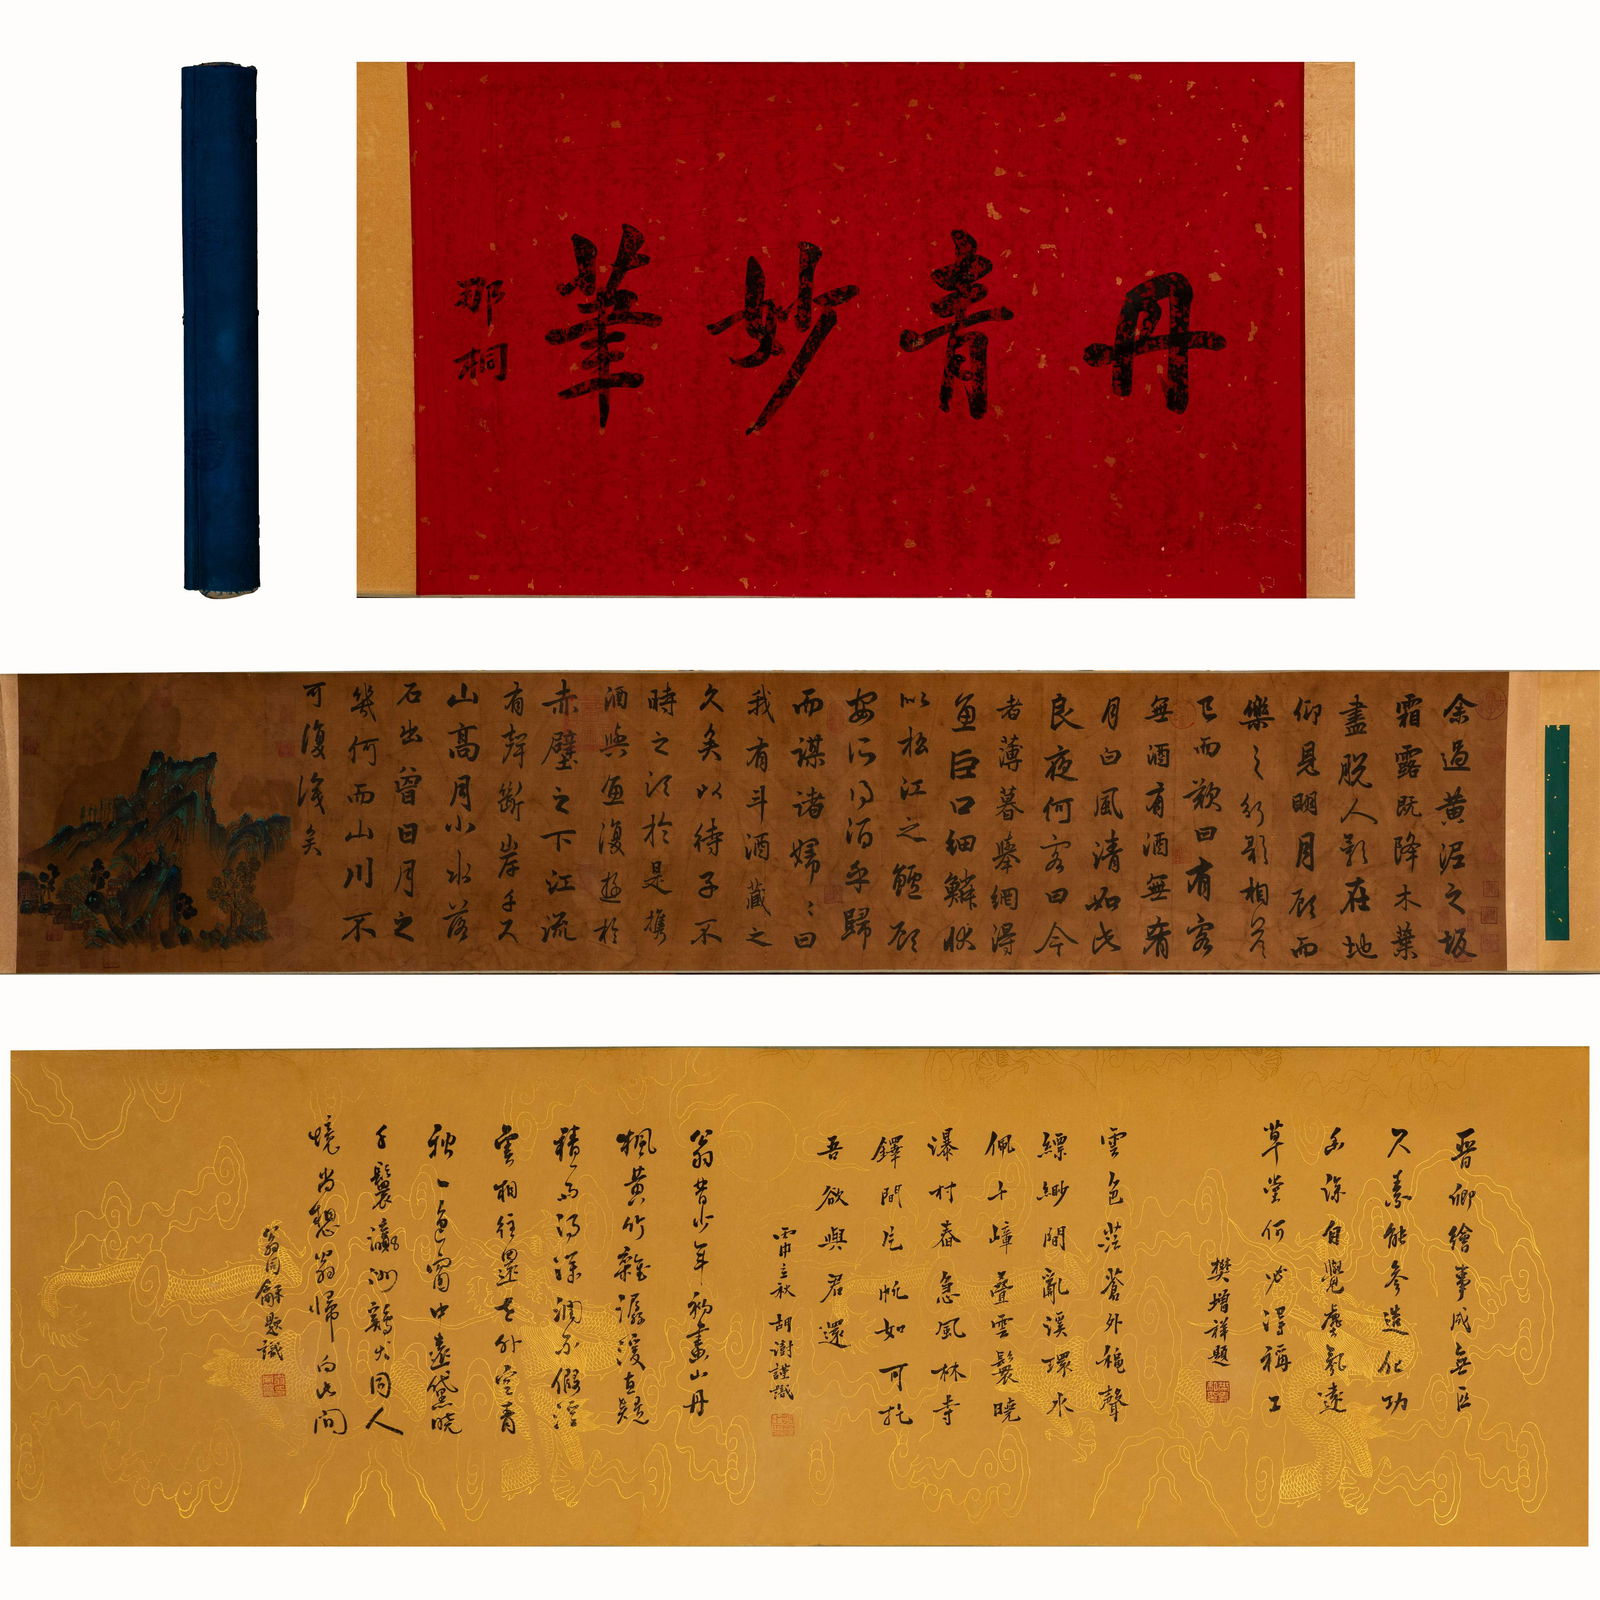 丹青妙筆
那桐
余過黃泥之坂
霜露既降木葉
盡脫人影在地
仰見明月顧而
樂之行歌相答
已而歎曰有客
無酒有酒無肴
月白風清如此
良夜何客曰今
者薄暮舉網得
魚巨口細鱗狀
似松江之鱸顧
安所得酒乎歸
而謀諸婦婦曰
我有斗酒藏之
久矣以待子不
時之須於是攜
酒與魚復遊於
赤壁之下江流
有聲斷岸千尺
山高月小水落
石出曾日月之
幾何而山川不
可復識矣
晉卿繪事成無匹
久素能參造化功
幽深自覺塵氣遠
草堂何必得稱工
樊增祥題
雲色茫蒼外穐聲
縹緲間亂溪環水
佩千嶂疊雲鬟曉
瀑村舂急風林寺
鐸間片帆如可托
吾欲與君還
丙申立秋 胡澍謹識
翁昔少年初畫山丹
楓黃竹雜潺湲直疑
積雨得深潤不假淫
雲相往還老外空青
秋一色窗中遠黛曉
千鬟瀛洲鷄犬同人
境尚想翁歸向此間
翁同龢題識